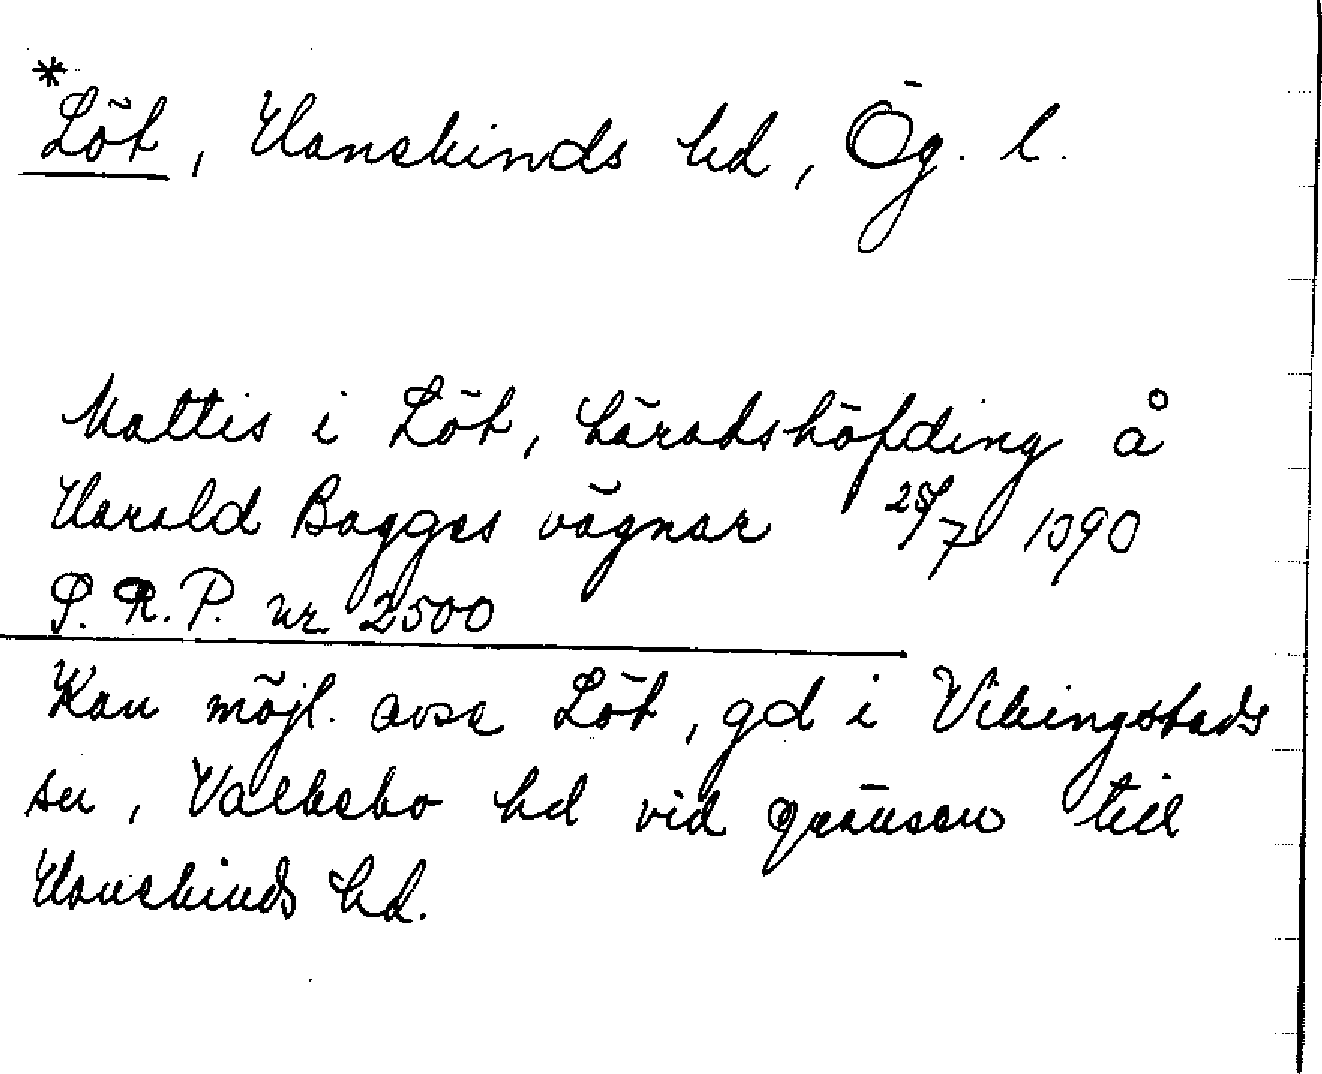 *
Löt, Hanekinds hd, Ög. l.
Mattis i Löt, häradshöfding å
Harald Bagges vägnar 25/7 1390
S. R. P. nr 2500
Kan möjl. avse Löt, gd i Vikingstads
sn, Valkebo hd vid gränsen till
Hanekinds hd.